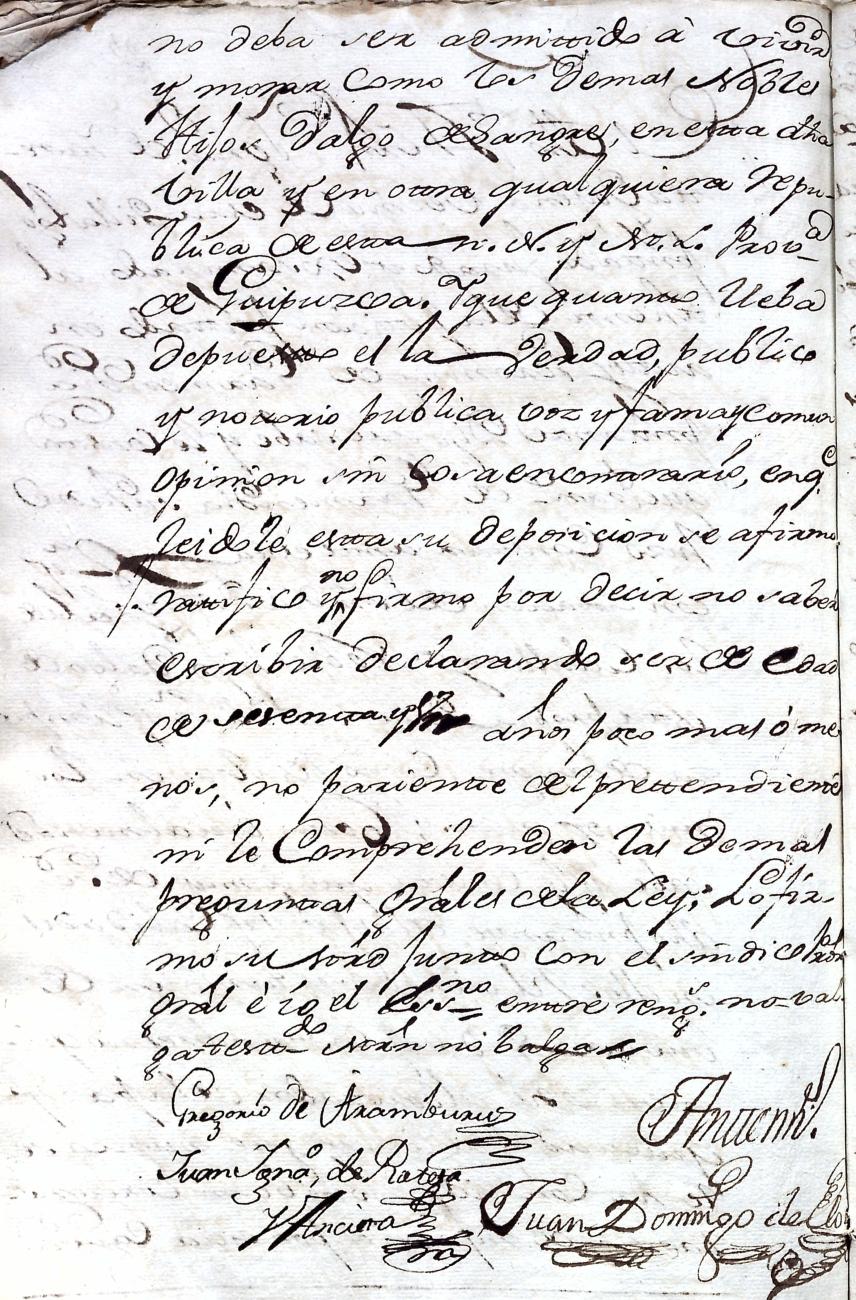 no deba ser admittido à vivir
y morar como los demas Nobles
Hijos Dalgo de Sangre, en esta dha
Villa y en otra qualquiera repu-
blica de esta M. N. y M. L. Prov.a
de Guipuzcoa. Y que quanto lleba
depuesto es la Verdad, publico
y nottorio publica voz y fama y comun
opinion sin cosa en contrario, en q.e
leidole esta su deposicion se afirmo
ratifico y no firmo por decir no saber
escribir declarando ser de edad
de sesenta y años poco mas ò me
nos, no pariente del prettendiente
ni le Comprehenden las demas
preguntas grāles de la Ley; Lo fir-
mó su mrd junto con el sindico Pror
grāl è io el Ess.no entre reng.s no val
ga test.do no balga
Gregorio de Aramburu
Antemi.
Juan Igna.o de
Y Anciera
Juan Domingo de